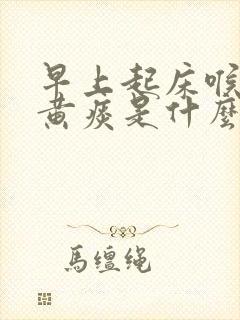 早上起床喉
黄痰是什麼
馬缰绳